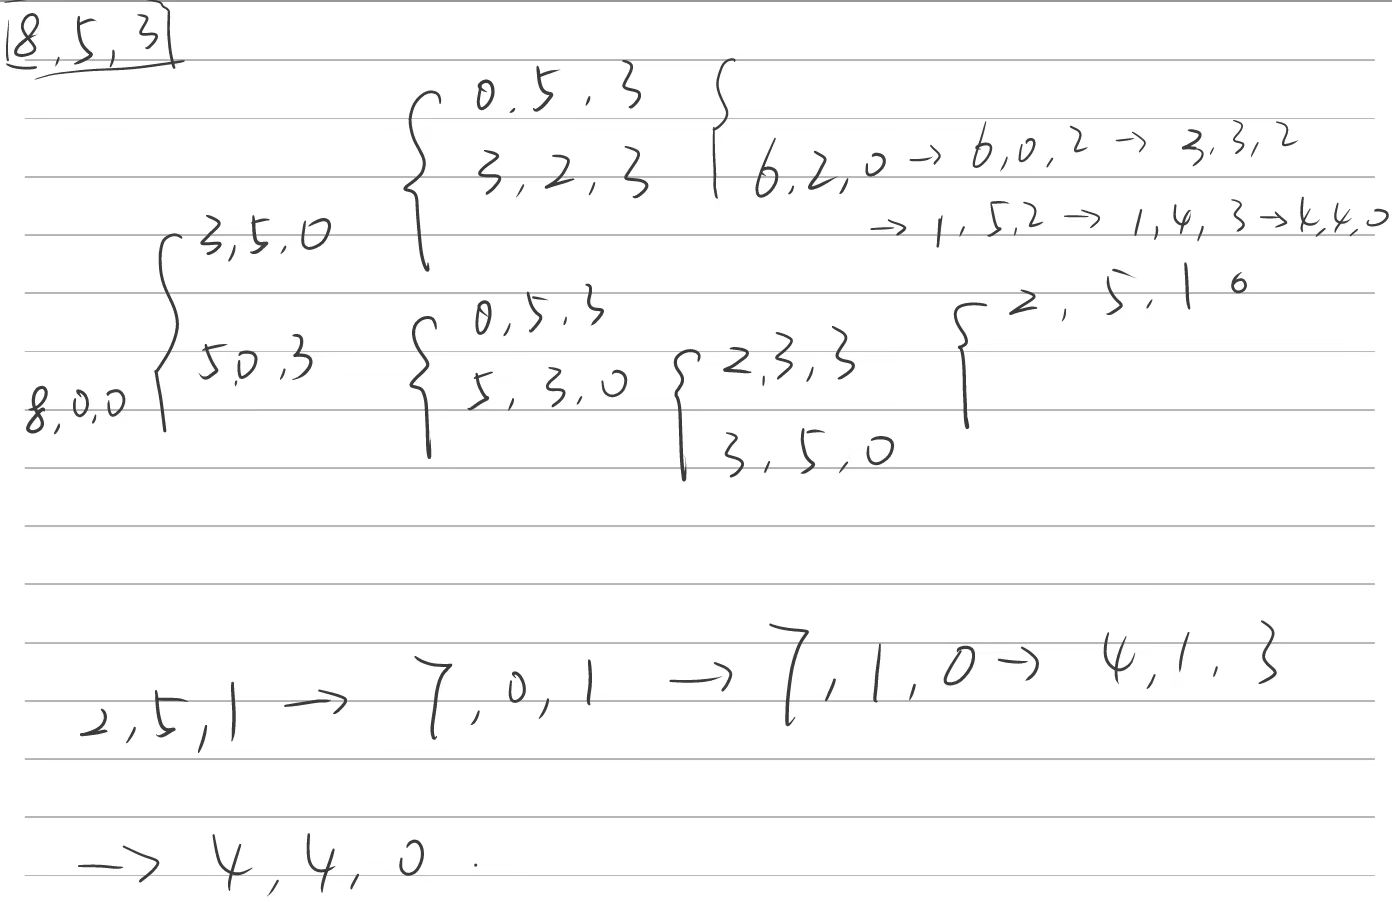 8,5,3
0.5.3
3,2,3
6,2,0→6,0,2→3,3,2
→1,5,2→1,4,3→4,4,0
3,5,0
5,0,3
8,0,0
0,5,3
5,3,0
2,3,3
3,5,0
2,5,1
2,5,1→7,0,1→7,1,0→4,1,3
→4,4,0.